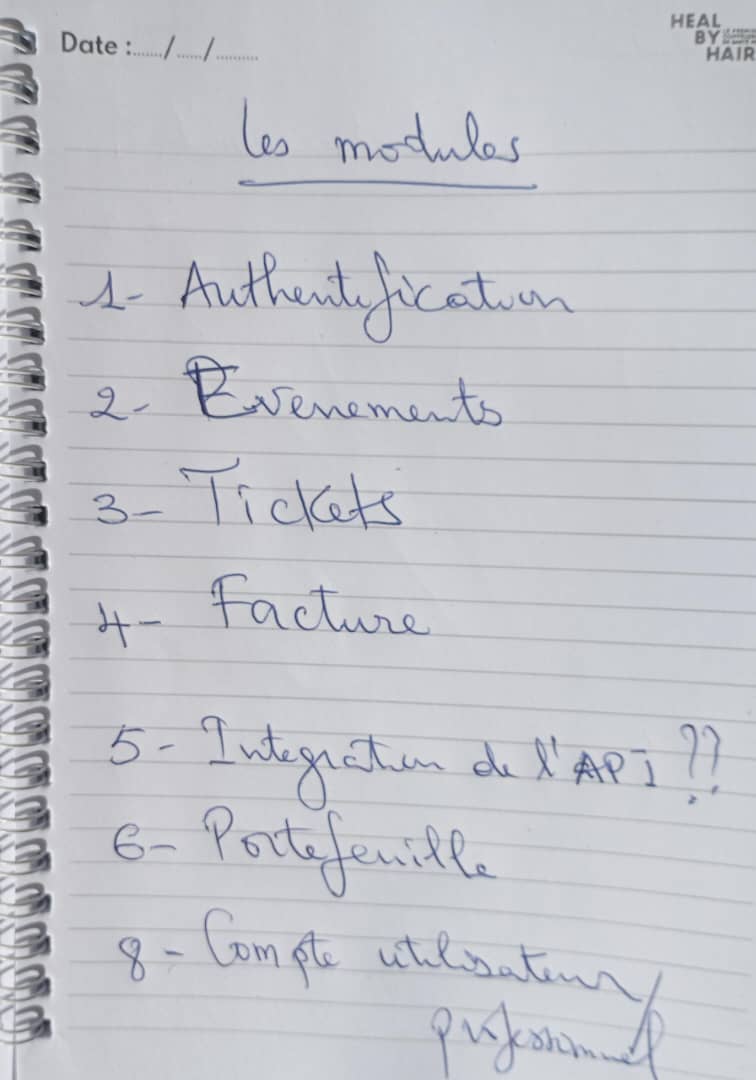 HEAL
BY
HAIR
Date :....../....../..........
les modules
1- Authentification
2- Evenements
3- Tickets
4- Facture
5- Integration de l'API ??
6- Portefeuille
8- Compte utilisateur/
professionnel